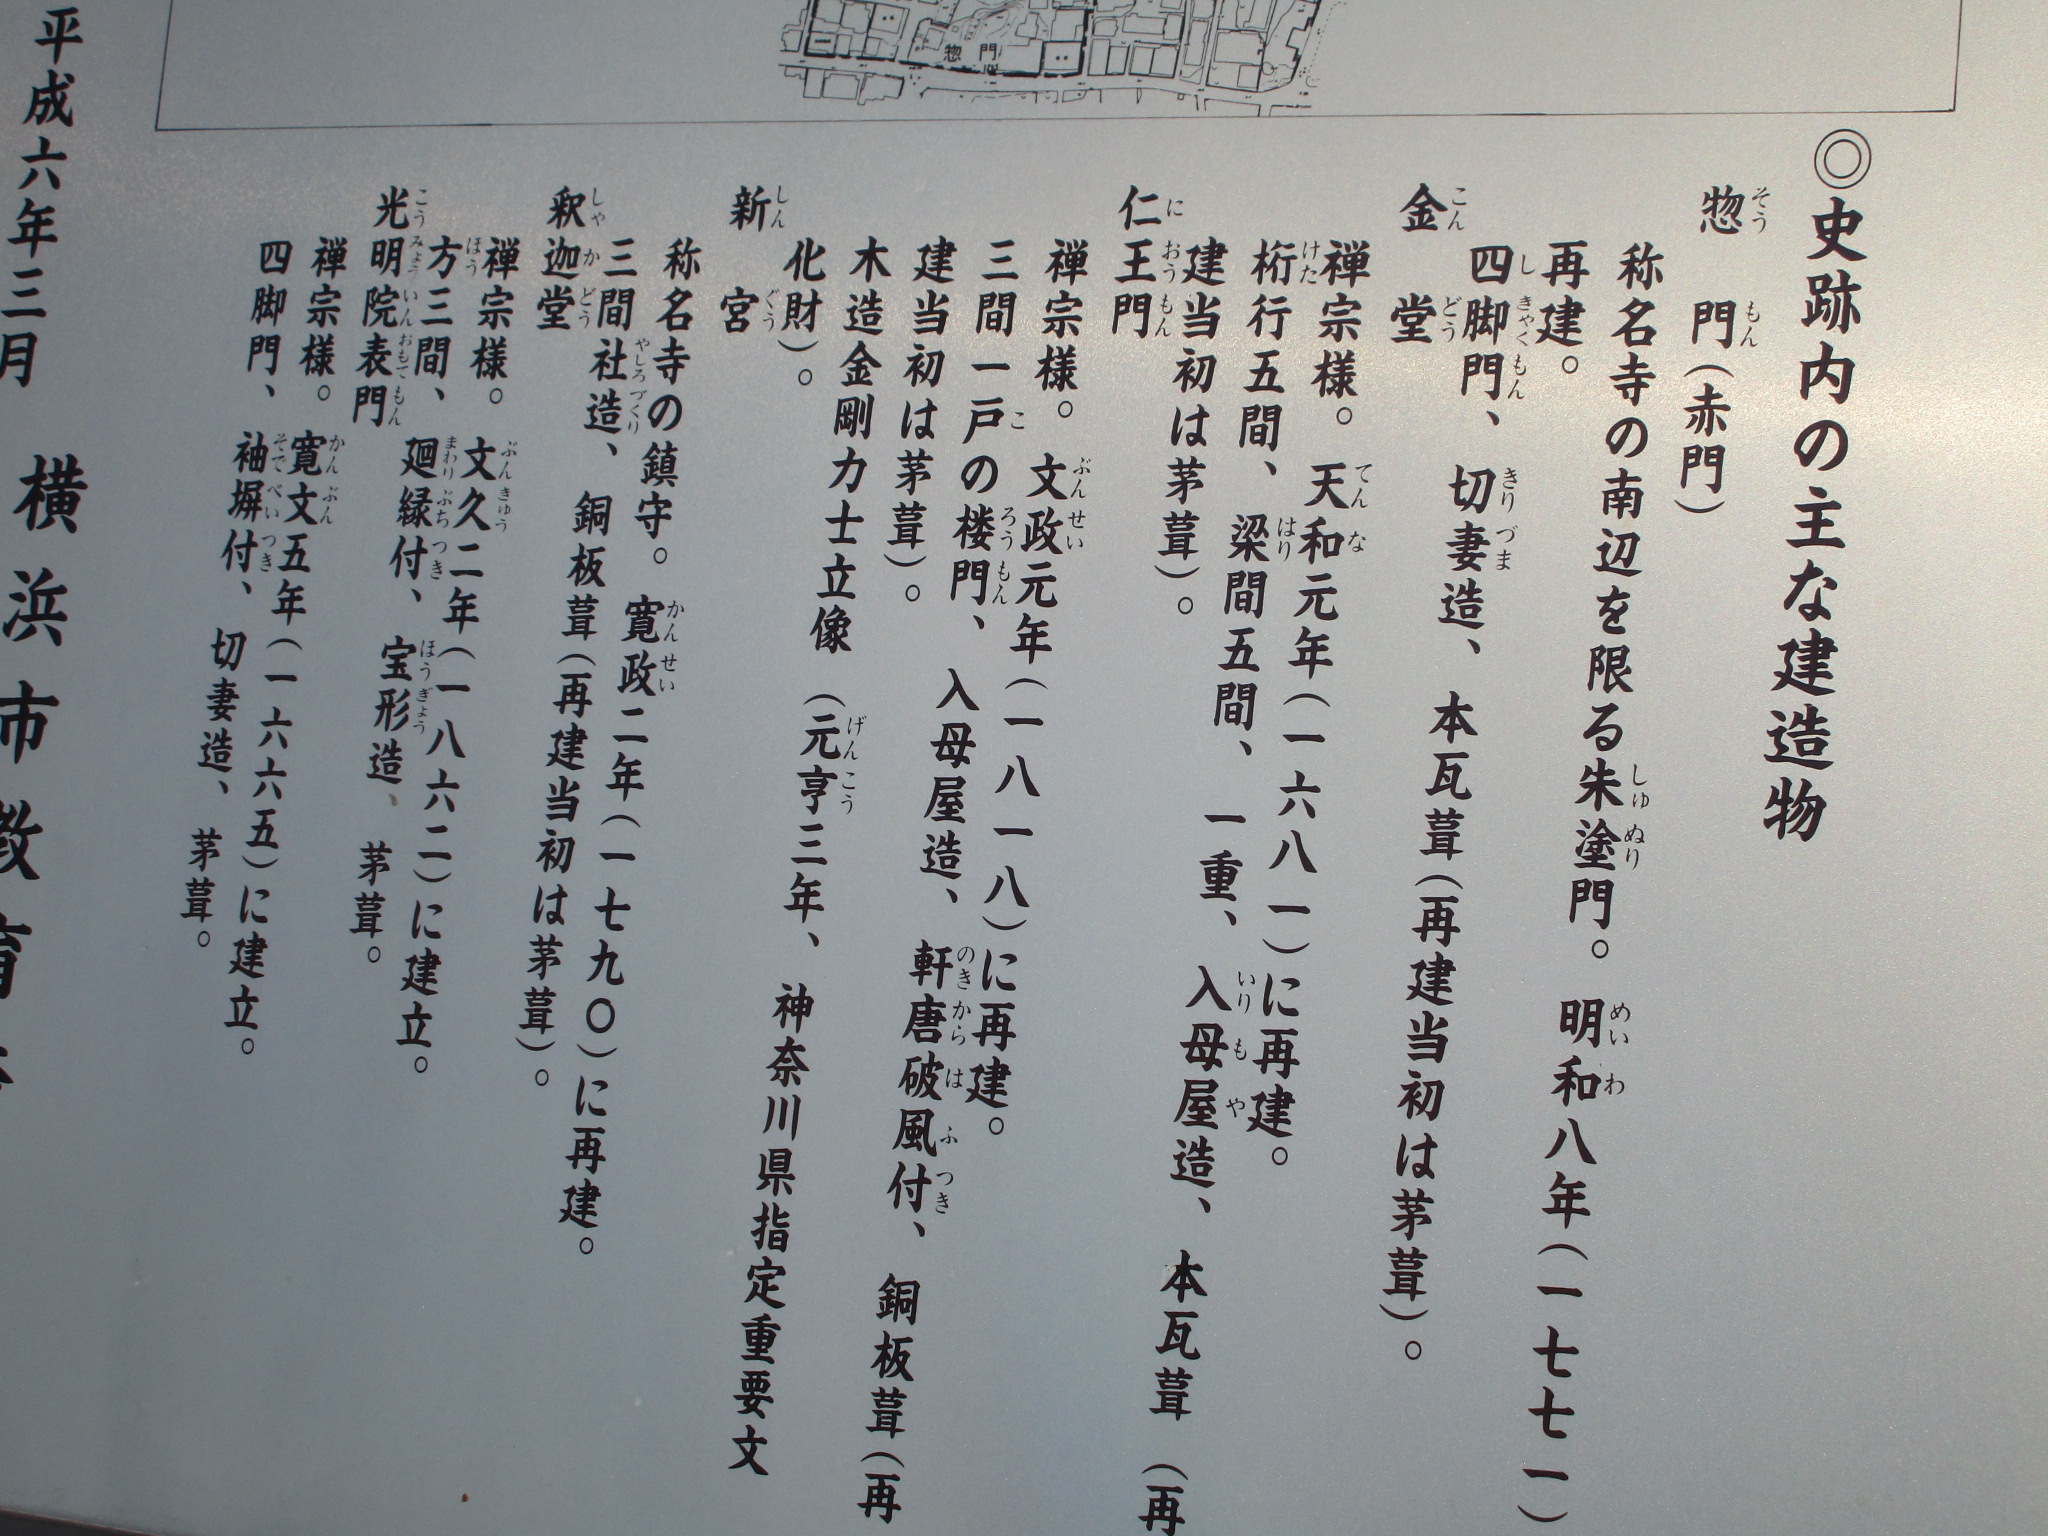 惣門
◎史跡内の主な建造物
惣門（赤門）
称名寺の南辺を限る朱塗門。明和八年（一七七一）
再建。
四脚門、切妻造、本瓦葺（再建当初は茅葺）。
金堂
禅宗様。天和元年（一六八一）に再建。
桁行五間、梁間五間、一重、入母屋造、本瓦葺（再
建当初は茅葺）。
仁王門
禅宗様。文政元年（一八一八）に再建。
三間一戸の楼門、入母屋造、軒唐破風付、銅板葺（再
建当初は茅葺）。
木造金剛力士立像（元亨三年、神奈川県指定重要文
化財）。
新宮
称名寺の鎮守。寛政二年（一七九〇）に再建。
三間社造、銅板葺（再建当初は茅葺）。
釈迦堂
禅宗様。文久二年（一八六二）に建立。
方三間、廻縁付、宝形造、茅葺。
光明院表門
禅宗様。寛文五年（一六六五）に建立。
四脚門、袖塀付、切妻造、茅葺。
平成六年三月 横浜市教育